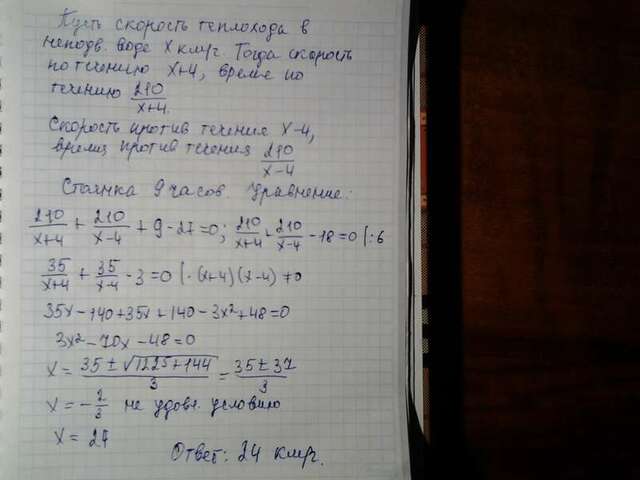 Пусть скорость теплохода в
неподв. воде x км/ч. Тогда скорость
по течению x+4, время по
течению 210/(x+4).
Скорость против течения x-4,
время против течения 210/(x-4)
Стоянка 9 часов. Уравнение:
210/(x+4) + 210/(x-4) + 9 - 27 = 0; 210/(x+4) + 210/(x-4) - 18 = 0 |:6
35/(x+4) + 35/(x-4) - 3 = 0 |·(x+4)(x-4) ≠ 0
35x - 140 + 35x + 140 - 3x² + 48 = 0
3x² - 70x - 48 = 0
x = (35 ± √(1225 + 144))/3 = (35 ± 37)/3
x = -2/3 не удовл. условию
x = 24
Ответ: 24 км/ч.